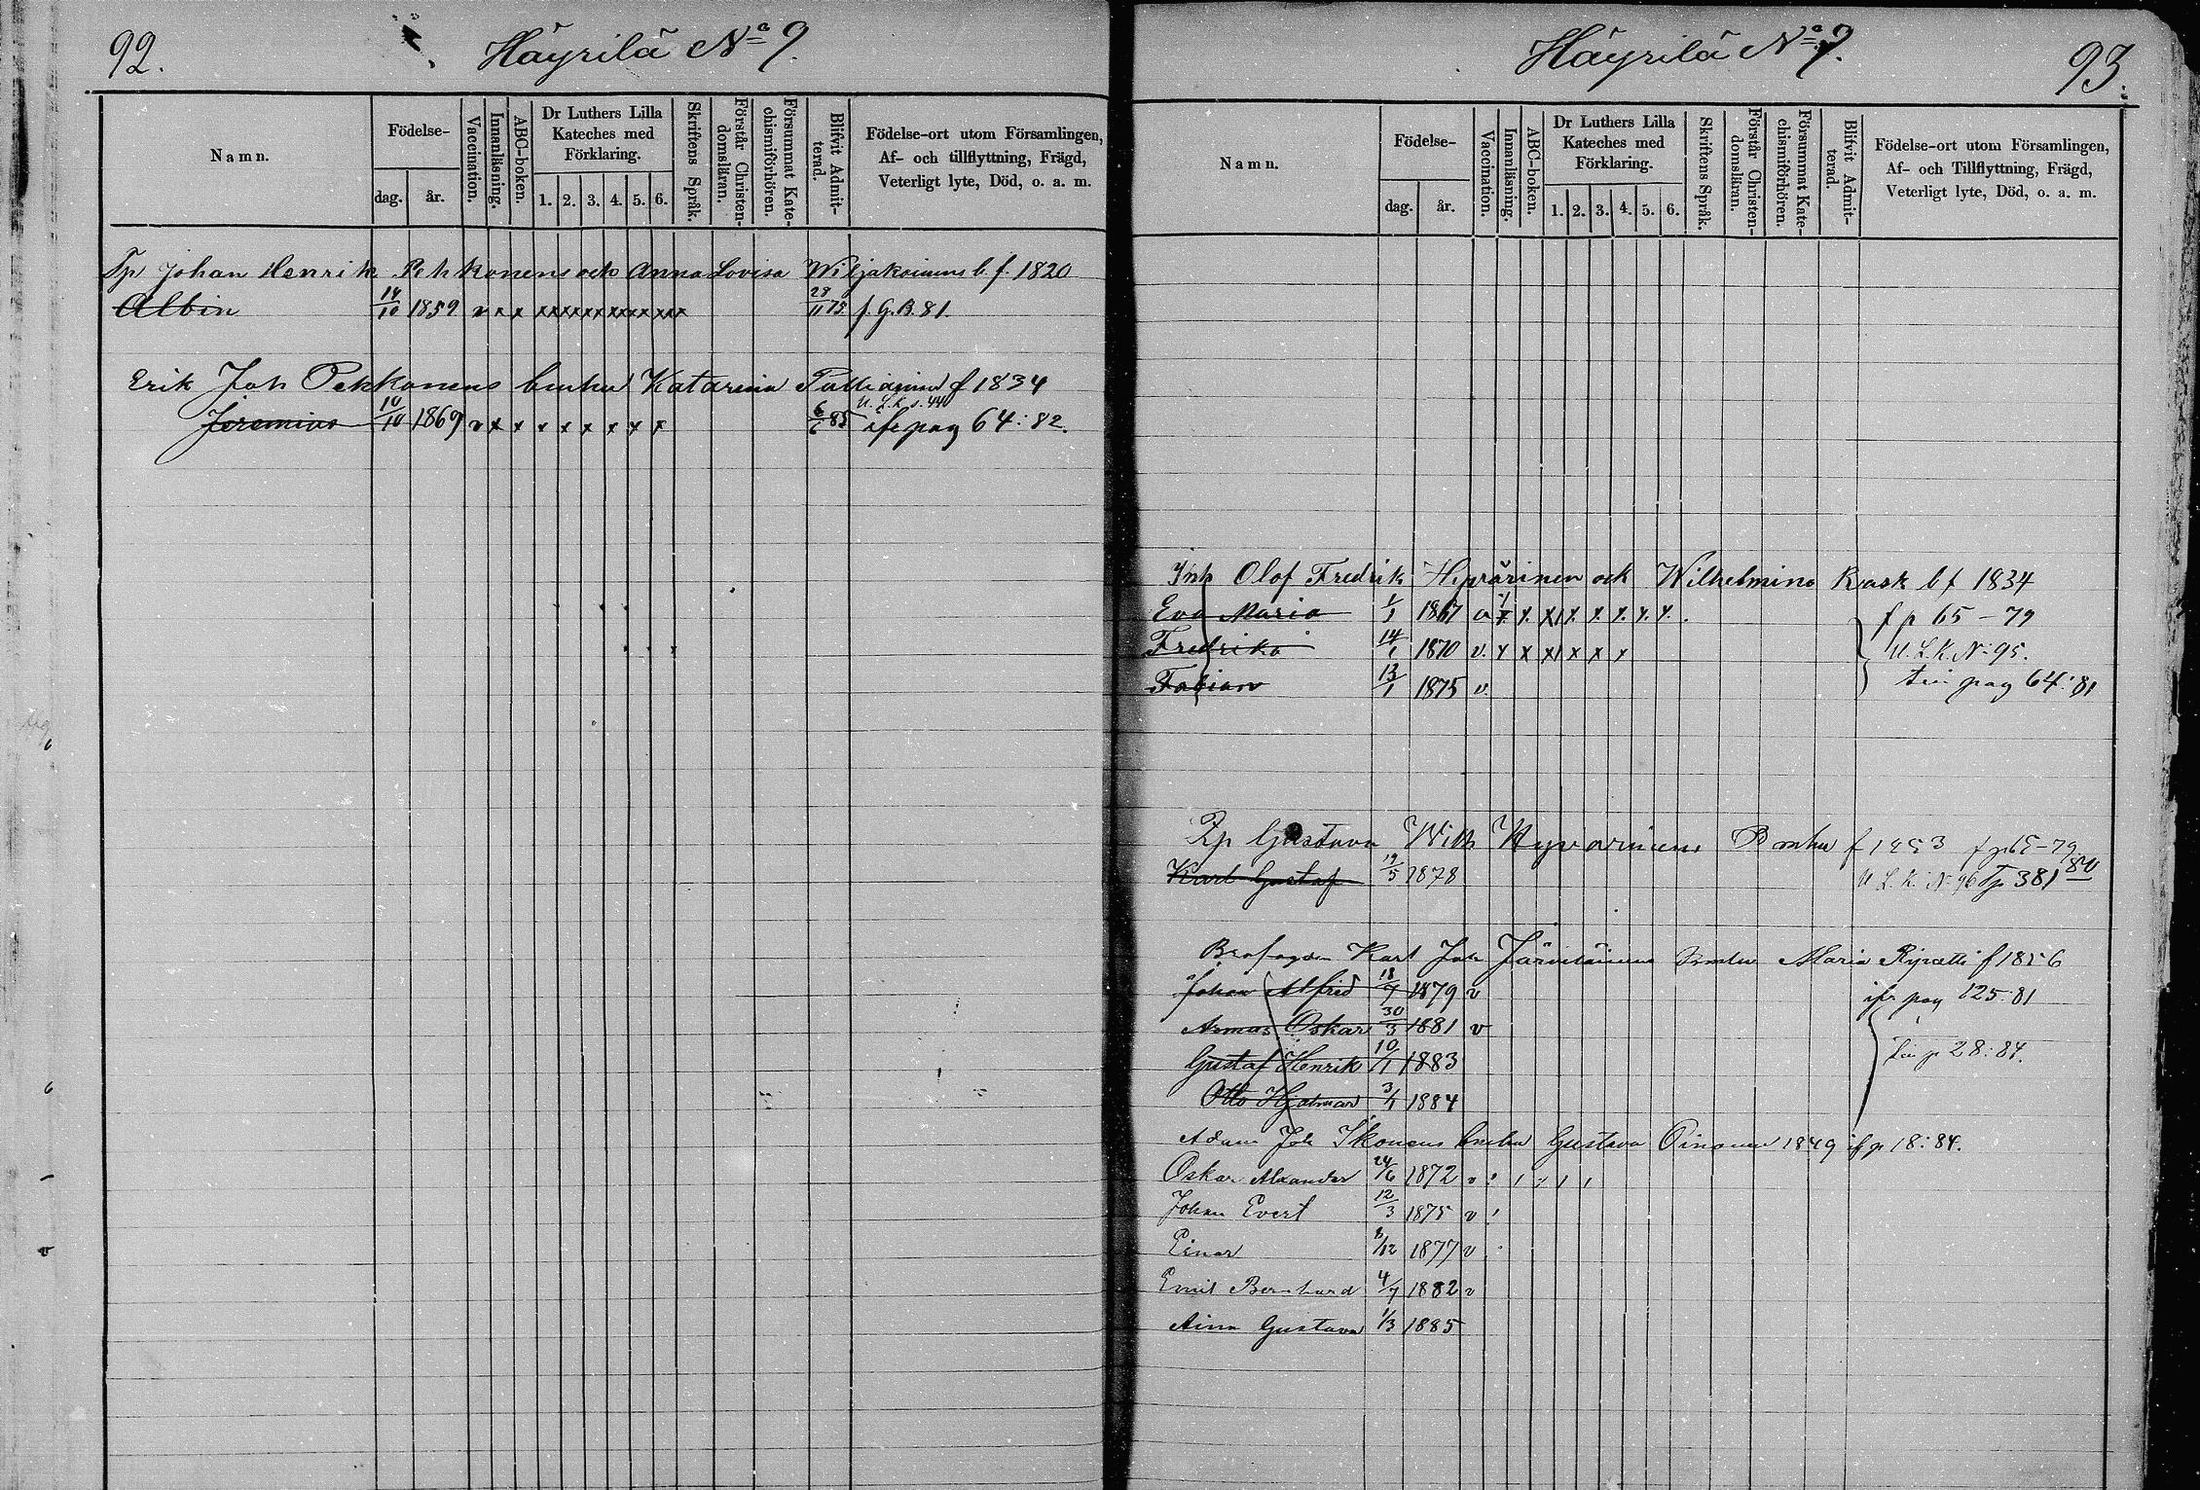 92.
Häyrilä No 9.
Namn.
Födelse-
dag.
år.
Vaccination.
Innanläsning.
ABC-boken.
Dr Luthers Lilla
Kateches med
Förklaring.
1. 2. 3. 4. 5. 6.
Skriftens Språk.
Förstår Christen-
domsläran.
Försummat Kate-
chismiförhören.
Blifvit Admit-
terad.
Födelse-ort utom Församlingen,
Af- och tillflyttning, Frägd,
Veterligt lyte, Död, o. a. m.
Johan Henrik Pehkonens och Anna Lovisa b. f. 1820
Albin 14/10 1859 v x x xx xx xx xx xx xxx 28/11 75 f. G. B. 81.
Erik Joh Pekkonens enka Katarina f 1834
U. L. K. s. 44
Jeremias 10/10 1869 v x x x x x x x x 6/6 85 ifr pag 64:82.
Häyrilä No 9.
93.
Namn.
Födelse-
dag.
år.
Vaccination.
Innanläsning.
ABC-boken.
Dr Luthers Lilla
Kateches med
Förklaring.
1. 2. 3. 4. 5. 6.
Skriftens Språk.
Förstår Christen-
domsläran.
Försummat Kate-
chismiförhören.
Blifvit Admit-
terad.
Födelse-ort utom Församlingen,
Af- och Tillflyttning, Frägd,
Veterligt lyte, Död, o. a. m.
Inh Olof Fredrik och Wilhelmina Rask b f 1834
Eva Maria 1/1 1867 v x x x x x x x x f p 65-79
Fredrika 14/1 1870 v. x x x x x x U. L. K. No 95.
Fabian 13/1 1875 v. pag 64:81
Gustava Wilh Hyvärinens f 1853 f p 65-79
Karl Gustaf 19/5 1878 U. L. K. No 96 381 80
Karl Joh Maria f 1856
Johan Alfred 18/7 1879 v ifr pag 125:81
Armas Oskar 30/3 1881 v
Gustaf Henrik 10/1 1883 p 28:84.
Otto Hjalmar 3/1 1884
Adam Joh Ikonens Gustava Oinonen 1849 if p 18:84.
Oskar Alexander 24/6 1872 v
Johan Evert 12/3 1875 v
Einar 8/12 1877 v
Emil Bernhard 4/7 1882 v
Aina Gustava 1/3 1885